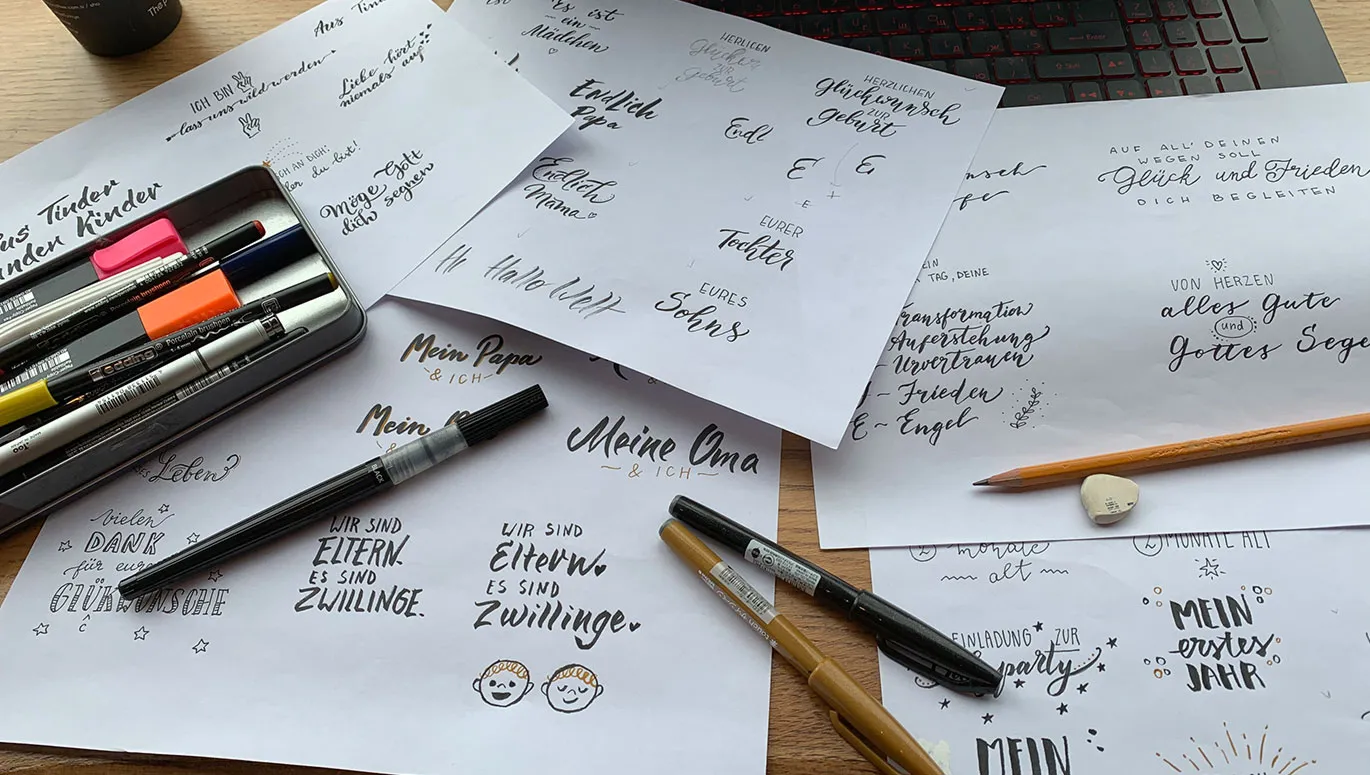 Aus Tinder
ICH BIN
lass uns wild werden
Liebe hört
niemals auf
CH AN DICH:
du bist!
Möge Gott
dich segnen
Tinder
Kinder
Es ist
- ein -
Mädchen
Endlich
Papa
Endlich
Mama
Hallo Welt
HERLICEN
Glücker
ZUR
Geburt
HERZLICHEN
Glückwunsch
ZUR
Geburt
Endl
E
E
E
EURER
Tochter
EURES
Sohns
AUF ALL' DEINEN
WEGEN SOLL
Glück und Frieden
DICH BEGLEITEN
EIN
TAG, DEINE
Transformation
Auferstehung
Urvertrauen
- Frieden
E - Engel
VON HERZEN
alles Gute
und
Gottes Sege
Mein Papa
& ICH
Mein
Meine Oma
~ & ICH ~
Leben
vielen
DANK
für eure
GLÜKWÜNSCHE
C
WIR SIND
ELTERN.
ES SIND
ZWILLINGE.
WIR SIND
Eltern
ES SIND
Zwillinge.
2 monate
alt
2 MONATE ALT
EINLADUNG ZUR
party
MEIN
erstes
JAHR
MEIN
edding
Porcelain brushpen
Enter